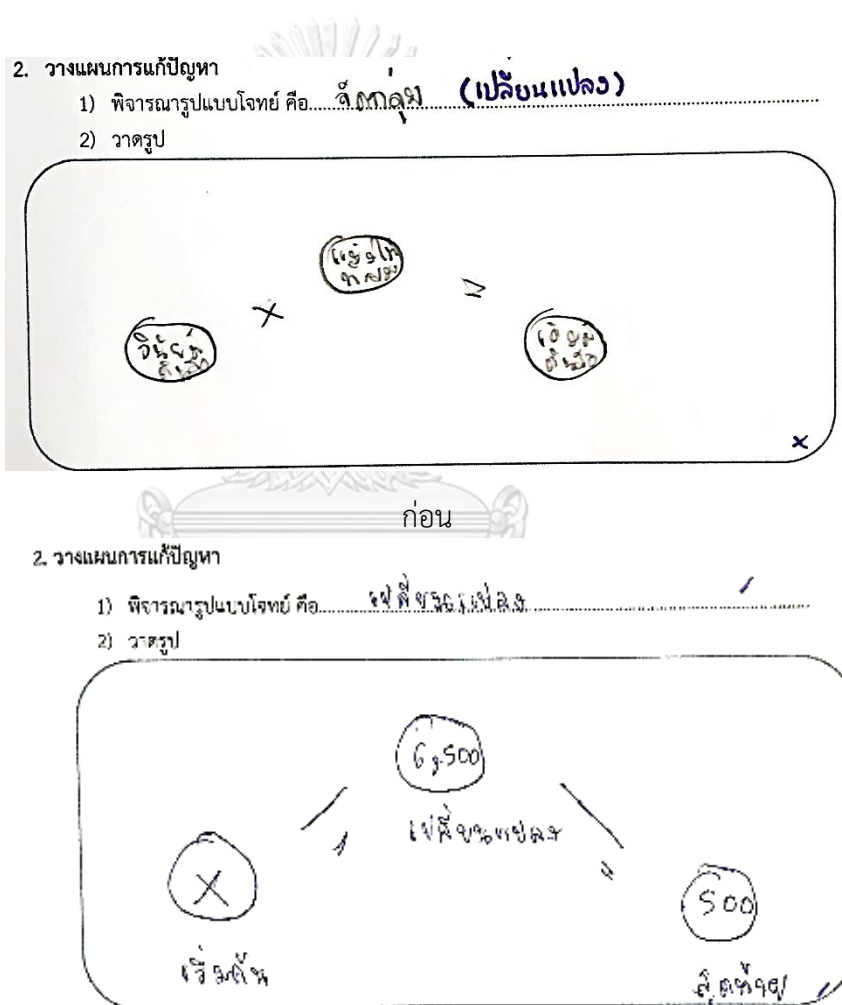 2. วางแผนการแก้ปัญหา
1) พิจารณารูปแบบโจทย์ คือ.....จัดกลุ่ม (เปลี่ยนแปลง)
2) วาดรูป
×
=
×
ก่อน
2. วางแผนการแก้ปัญหา
1) พิจารณารูปแบบโจทย์ คือ.....เปลี่ยนแปลง
2) วาดรูป
6,500
เปลี่ยนแปลง
X
500
เริ่มต้น
สุดท้าย